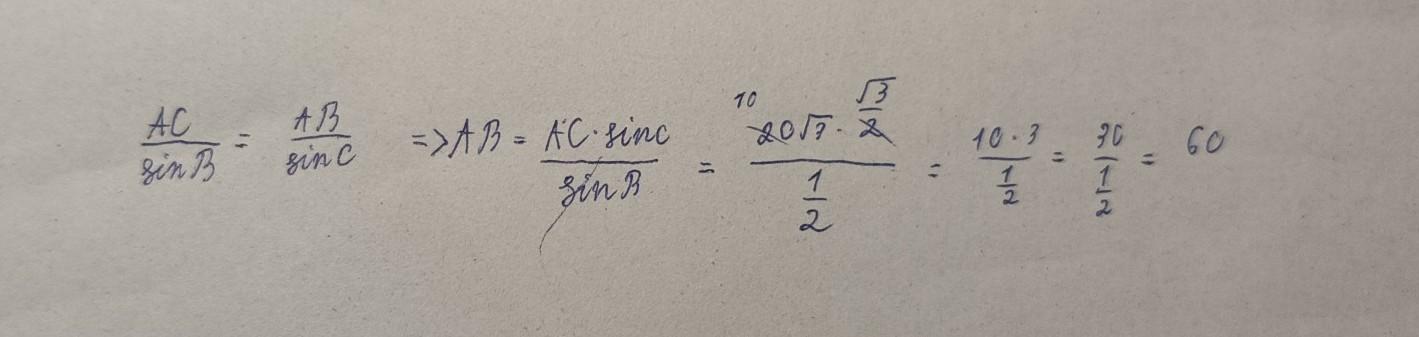 AC/sinB = AB/sinC => AB = AC·sinC/sinB = (20√3 · √3/2)/(1/2) = (10·3)/(1/2) = 30/(1/2) = 60
10